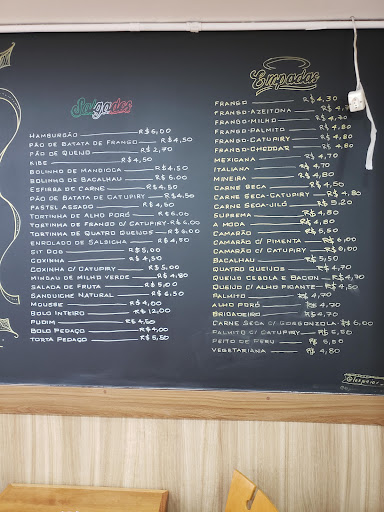 Salgados
HAMBURGÃO R$6,00
PÃO DE BATATA DE FRANGO R$4,50
PÃO DE QUEIJO R$2,70
KIBE R$4,50
BOLINHO DE MANDIOCA R$4,50
BOLINHO DE BACALHAU R$5,00
ESFIRRA DE CARNE R$4,50
PÃO DE BATATA DE CATUPIRY R$4,50
PASTEL ASSADO R$4,50
TORTINHA DE ALHO PORÓ R$6,00
TORTINHA DE FRANGO C/CATUPIRY R$6,00
TORTINHA DE QUATRO QUEIJOS R$6,00
ENROLADO DE SALSICHA R$4,50
SIT DOG R$5,00
COXINHA R$4,50
COXINHA C/CATUPIRY R$5,00
MINGAU DE MILHO VERDE R$4,80
SALADA DE FRUTA R$5,00
SANDUICHE NATURAL R$6,50
MOUSSE R$4,00
BOLO INTEIRO R$12,00
PUDIM R$4,50
BOLO PEDAÇO R$4,00
TORTA PEDAÇO R$5,50
Empadas
FRANGO R$4,30
FRANGO-AZEITONA R$4,70
FRANGO-MILHO R$4,70
FRANGO-PALMITO R$4,80
FRANGO-CATUPIRY R$4,80
FRANGO-CHEDDAR R$4,80
MEXICANA R$4,70
ITALIANA R$4,70
MINEIRA R$4,80
CARNE SECA R$4,50
CARNE SECA-CATUPIRY R$4,80
CARNE SECA-JILÓ R$5,20
SUPREMA R$4,80
A MODA R$4,80
CAMARÃO R$5,50
CAMARÃO C/ PIMENTA R$6,00
CAMARÃO C/ CATUPIRY R$6,00
BACALHAU R$5,50
QUATRO QUEIJOS R$4,70
QUEIJO CEBOLA E BACON R$4,70
QUEIJO C/ ALHO PICANTE R$4,50
PALMITO R$4,70
ALHO PORÓ R$4,70
BRIGADEIRO R$4,70
CARNE SECA C/ GORGONZOLA R$6,00
PALMITO C/ CATUPIRY R$5,50
PEITO DE PERU R$5,50
VEGETARIANA R$4,80